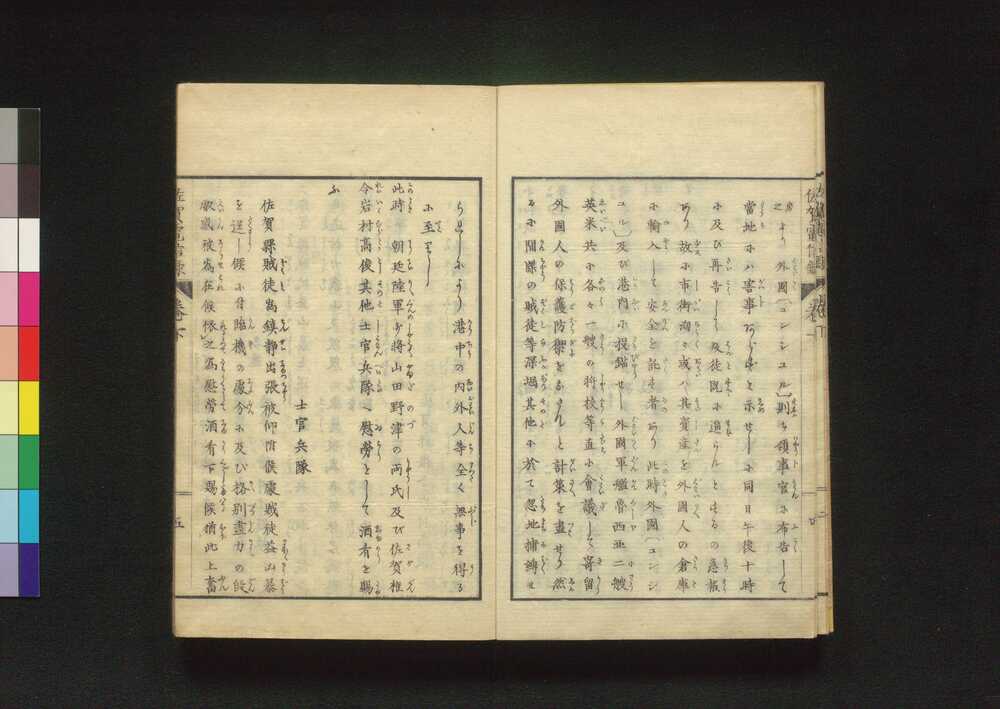 より外國「コンシユル」則ち領事官に布告して
當地には害事あらずと示せしに同日午後十時
に及び再告して及徒既に進らんとするの急報
あり故に市街洶々或ハ其資産を外國人の倉庫
に輸入して安全を託する者あり此時外國「コンシ
ユル」及び港内に投錨せし外國軍艦魯西亜二艘
英米共に各々一艘の將校等直に會議して寄留
外國人の保護防禦をなさんと計策を盡せり然
るに間諜の賊徒等深堀其他に於て忽地捕縛せ
られしにより港中の内外人等全く無事を得る
に至れり
此時 朝廷陸軍少將山田野津の両氏及び佐賀権
令岩村高俊其他士官兵隊へ慰勞として酒肴を賜
ふ
士官兵隊
佐賀縣賊徒為鎮静出張被仰付候處賊徒益山暴
を逞し候に付臨機の處分に及び格別盡力の段
叡感被為在候依之為慰勞酒肴下賜候猶此上奮
佐賀電信録 巻下 五